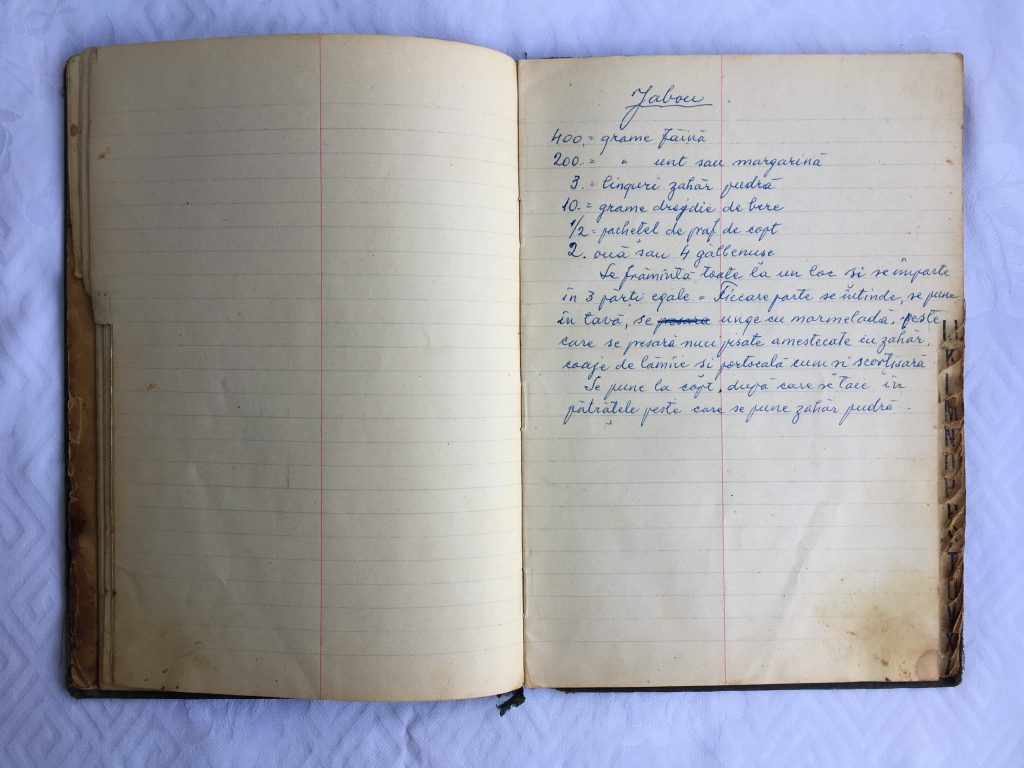 Jabou
400.= grame făină
200.= " unt sau margarină
3.= linguri zahăr pudră
10.= grame drojdie de bere
1/2= pachetel de praf de copt
2. ouă sau 4 gălbenușe
Se frămîntă toate la un loc și se împarte
în 3 părți egale = Fiecare parte se întinde, se pune
în tavă, se presară unge cu marmeladă, peste
care se presară nuci pisate amestecate cu zahăr,
coaje de lămîie si portocală cum si scorțișară
Se pune la copt, după care se taie în
pătrățele peste care se pune zahăr pudră -
K
L
M
N